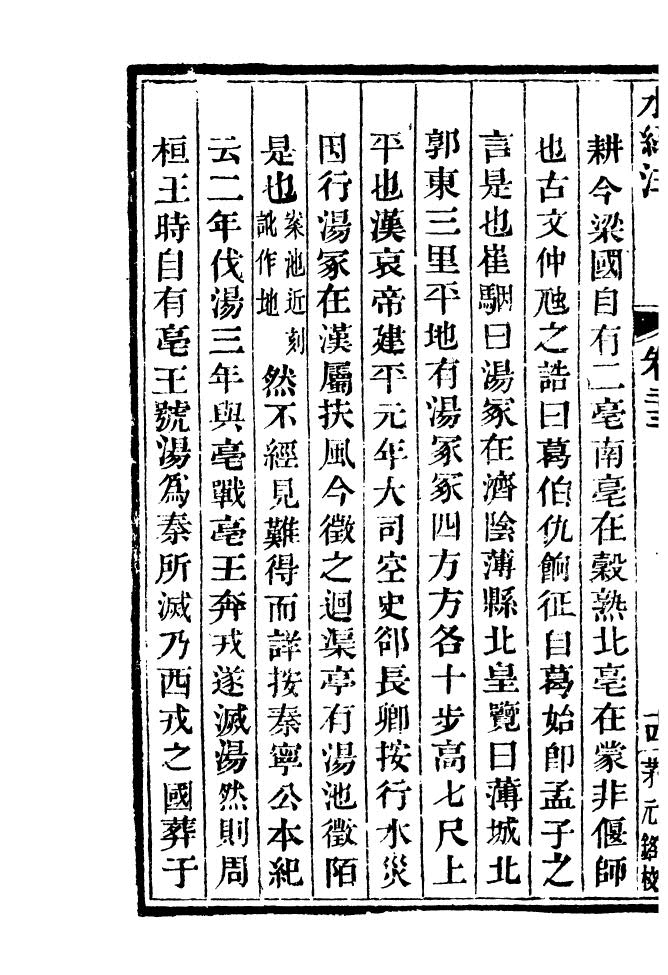 水經注 卷二十三 十四 茅元銘校
耕今梁國自有二亳南亳在穀熟北亳在蒙非偃師
也古文仲虺之誥曰葛伯仇餉征自葛始卽孟子之
言是也崔駰曰湯冢在濟陰薄縣北皇覽曰薄城北
郭東三里平地有湯冢冢四方方各十步高七尺上
平也漢哀帝建平元年大司空史郤長卿按行水災
因行湯冢在漢屬扶風今徵之迴渠亭有湯池徵陌
是也案池近刻訛作地然不經見難得而詳按秦寧公本紀
云二年伐湯三年與亳戰亳王奔戎遂滅湯然則周
桓王時自有亳王號湯爲秦所滅乃西戎之國葬于